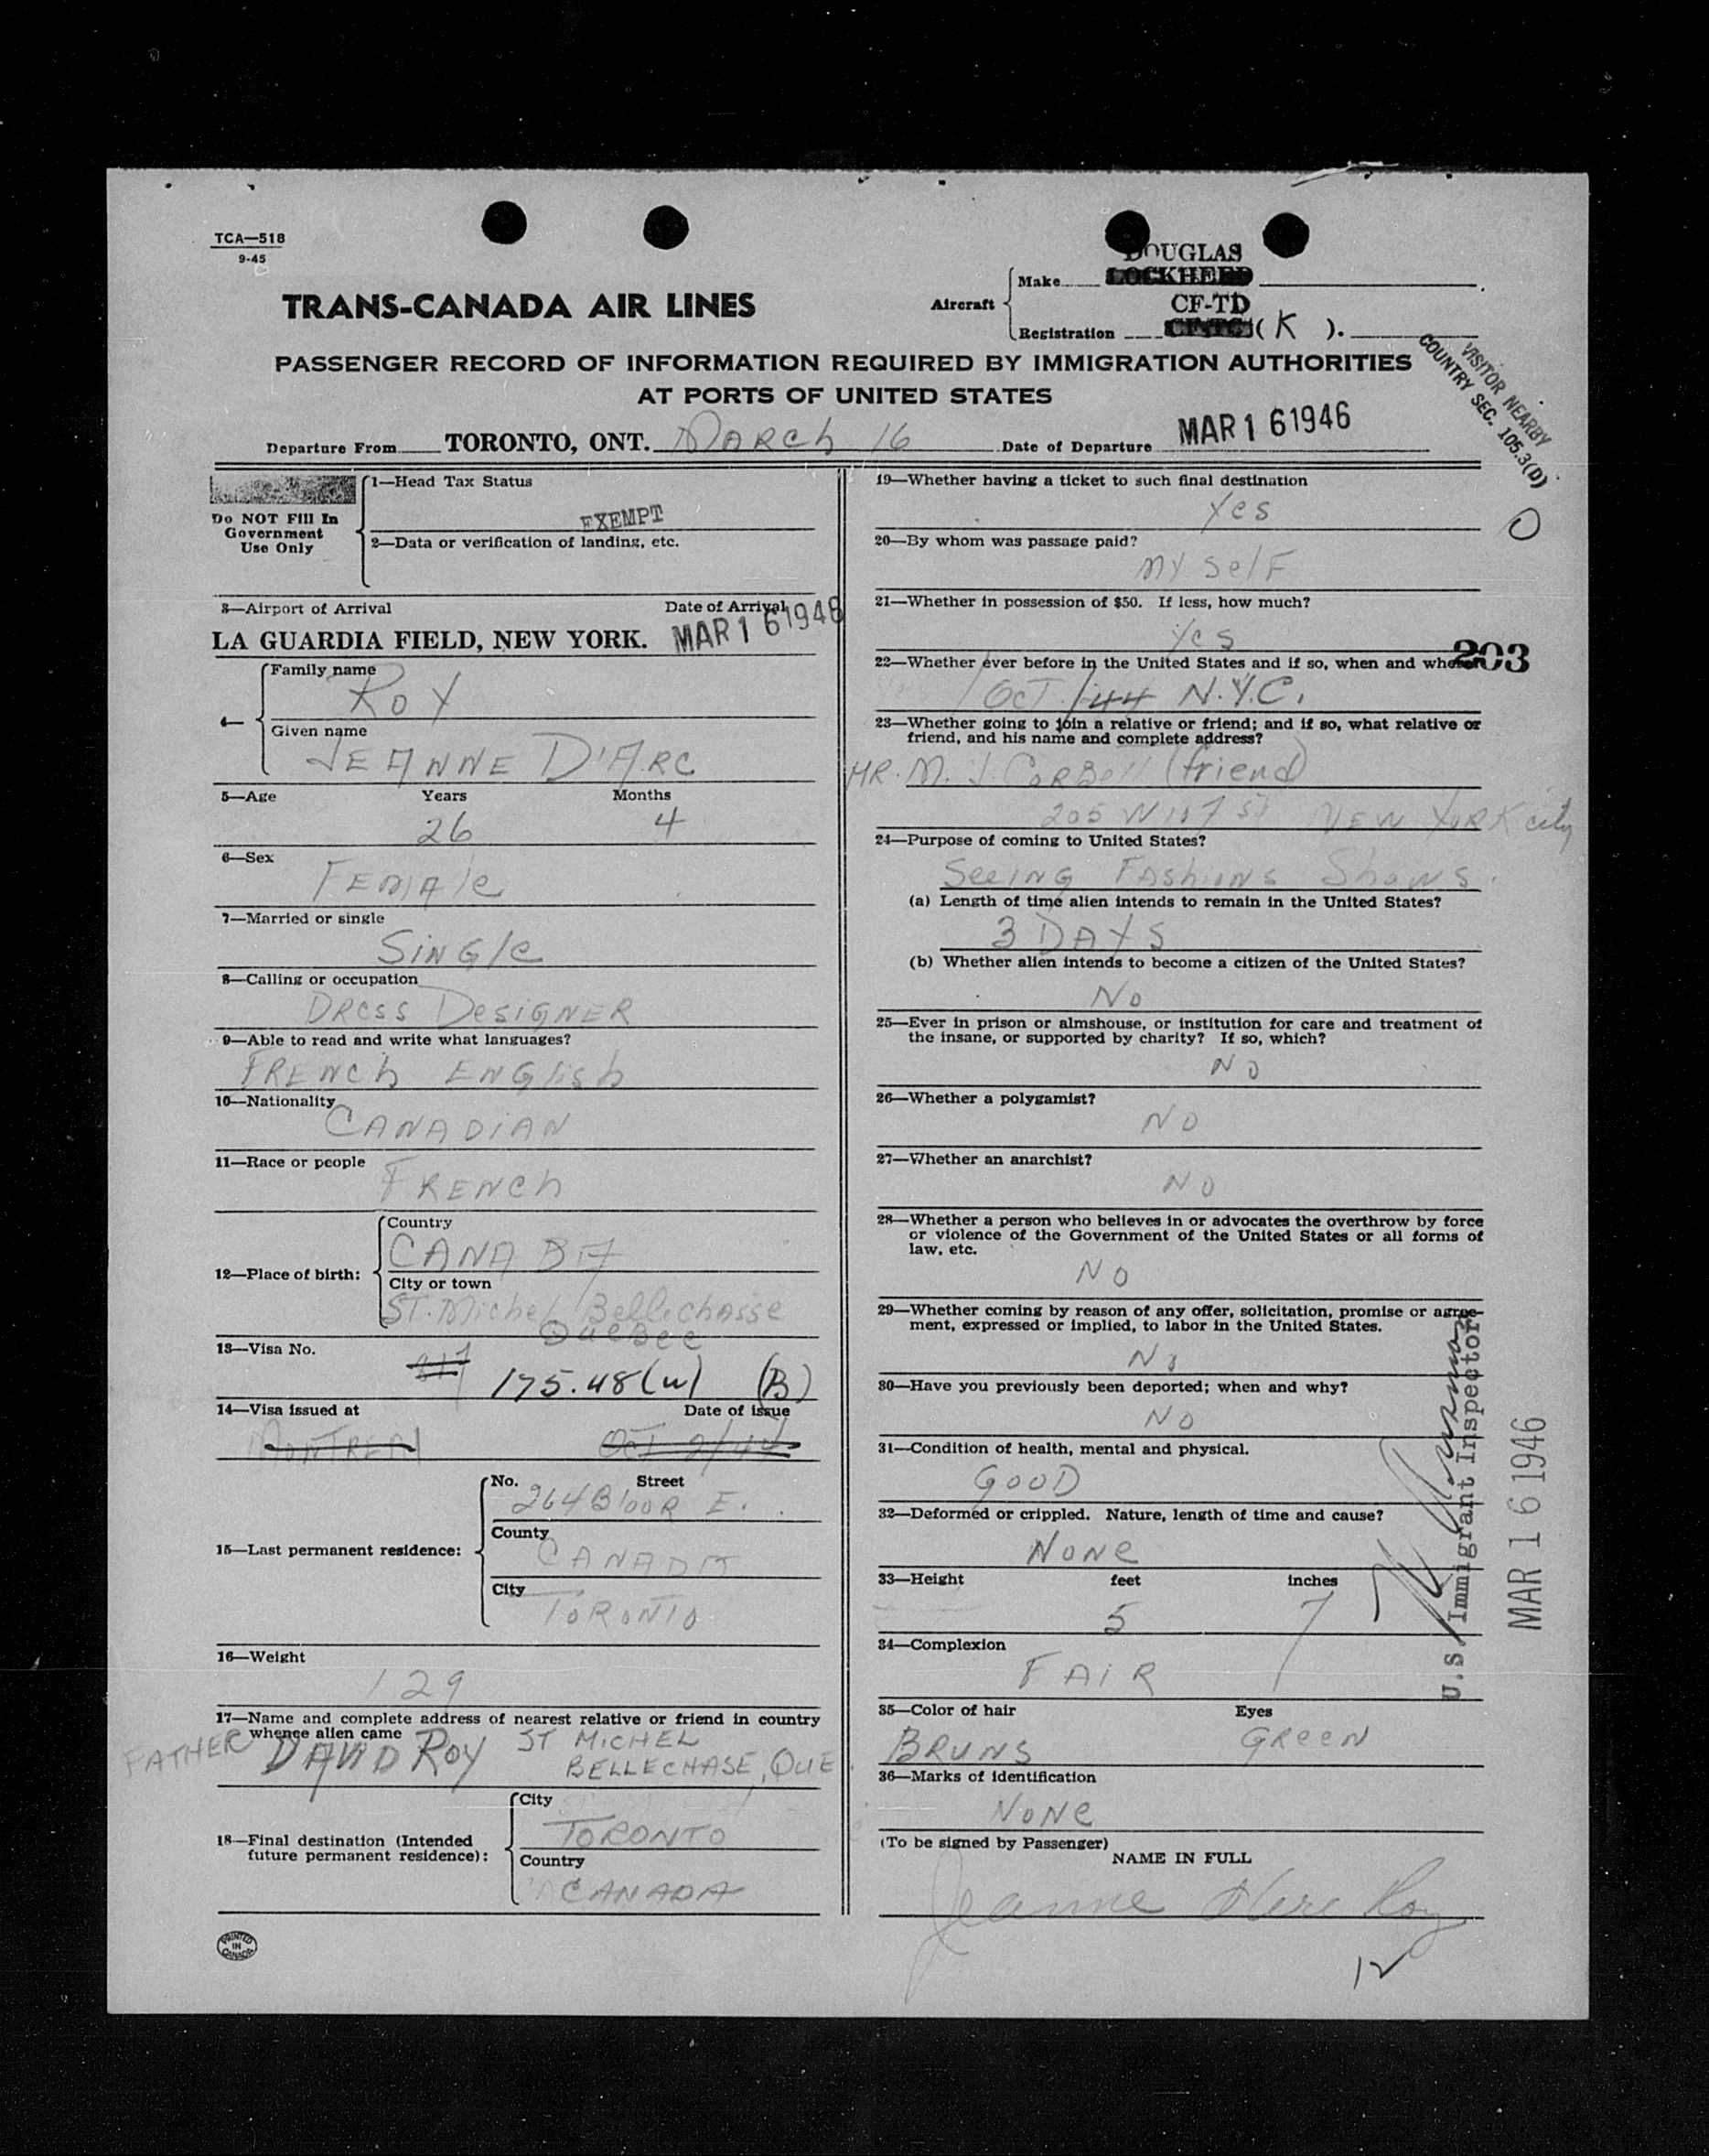 TCA—518
9-45
DOUGLAS
Make LOCKHEED
Aircraft
CF-TD
Registration CF-TC ( K ).
TRANS-CANADA AIR LINES
PASSENGER RECORD OF INFORMATION REQUIRED BY IMMIGRATION AUTHORITIES
AT PORTS OF UNITED STATES
VISITOR NEARBY
COUNTRY SEC. 105.3(D)
Departure From TORONTO, ONT. MARCh 16 Date of Departure MAR 1 6 1946
Do NOT Fill In
Government
Use Only
1—Head Tax Status
EXEMPT
2—Data or verification of landing, etc.
3—Airport of Arrival Date of Arrival
LA GUARDIA FIELD, NEW YORK. MAR 1 6 1946
4—
Family name
ROY
Given name
JEANNE D'ARC
5—Age Years Months
26 4
6—Sex
FEMAle
7—Married or single
SiNGle
8—Calling or occupation
DRess DesiGNER
9—Able to read and write what languages?
FRENCh ENGlish
10—Nationality
CANADiAN
11—Race or people
FRENCh
12—Place of birth:
Country
CANADA
City or town
ST. Michel Bellechasse
QueBec
13—Visa No.
175.48(w) (B)
14—Visa issued at Date of issue
MONTREAl OCT 2/44
15—Last permanent residence:
No. Street
264 BlooR E.
County
CANADA
City
ToRONTo
16—Weight
129
17—Name and complete address of nearest relative or friend in country
whence alien came
FATHER DAVID ROY ST MICHEL
BELLECHASE, QUE
18—Final destination (Intended
future permanent residence):
City
TORONTO
Country
CANADA
PRINTED
IN
CANADA
19—Whether having a ticket to such final destination
Yes
O
20—By whom was passage paid?
MY SelF
21—Whether in possession of $50. If less, how much?
Yes
203
22—Whether ever before in the United States and if so, when and where?
OcT /44 N.Y.C.
23—Whether going to join a relative or friend; and if so, what relative or
friend, and his name and complete address?
MR. M. J. CoRBell (friend)
205 W 107 St NEW YORK city
24—Purpose of coming to United States?
SeeiNG FAShioNS ShowS.
(a) Length of time alien intends to remain in the United States?
3 DAYS
(b) Whether alien intends to become a citizen of the United States?
No
25—Ever in prison or almshouse, or institution for care and treatment of
the insane, or supported by charity? If so, which?
NO
26—Whether a polygamist?
NO
27—Whether an anarchist?
NO
28—Whether a person who believes in or advocates the overthrow by force
or violence of the Government of the United States or all forms of
law, etc.
NO
29—Whether coming by reason of any offer, solicitation, promise or agree-
ment, expressed or implied, to labor in the United States.
No
30—Have you previously been deported; when and why?
NO
31—Condition of health, mental and physical.
GOOD
32—Deformed or crippled. Nature, length of time and cause?
NoNe
33—Height feet inches
5 7
34—Complexion
FAiR
35—Color of hair Eyes
BRUNS GReeN
36—Marks of identification
NoNe
U.S. Immigrant Inspector
MAR 1 6 1946
(To be signed by Passenger)
NAME IN FULL
Jeanne Roy
12